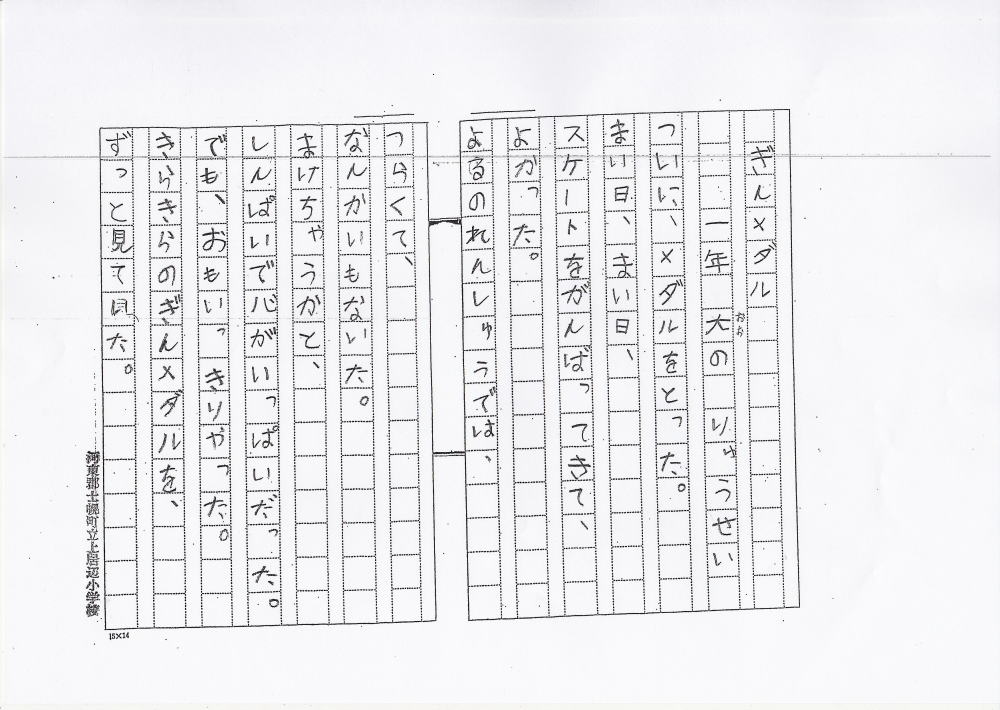 ぎんメダル
一年 大の りゅうせい
ついに、メダルをとった。
まい日、まい日、
スケートをがんばってきて、
よかった。
よるのれんしゅうでは、
つらくて、
なんかいもないた。
まけちゃうかと、
しんぱいで心がいっぱいだった。
でも、おもいっきりやった。
きらきらのぎんメダルを、
ずっと見て た。
河東郡士幌町立上居辺小学校
15×14